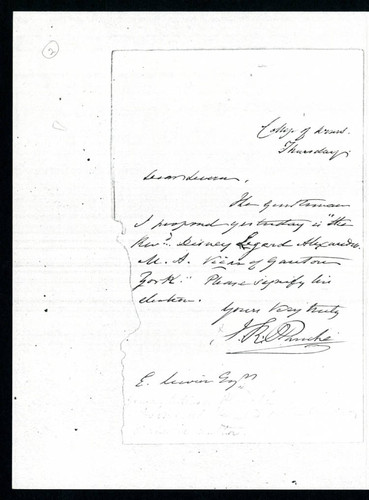 2
College of Arms.
Thursday.
Dear Levien,
The gentleman
I proposed yesterday is "the
Revd. Disney Legard Alexander
M. A. Vicar of Ganton
York." Please signify his
election.
Yours very truly
J. R. Planché
E. Levien Esqre